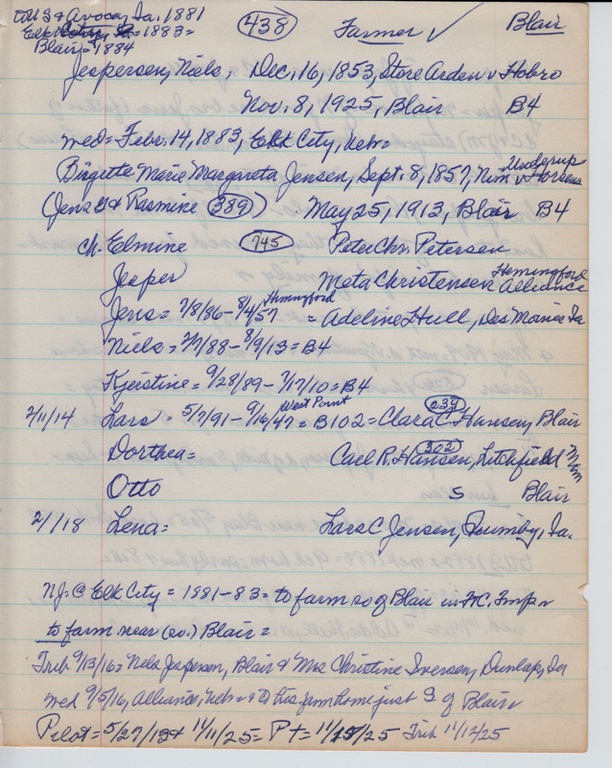 to US & Avoca, Ia. 1881
Elk City, = 1883 =
Blair = 1884
438 Farmer ✓ Blair
Jespersen, Niels, Dec. 16, 1853, Store Arden v Hobro
Nov. 8, 1925, Blair B4
wed = Febr. 14, 1883, Elk City, Neb =
Birgette Marie Margareta Jensen, Sept. 8, 1857, Nim v Horsens
(Jens & Rasmine 389) - May 25, 1913, Blair B4
ch. Elmine 745 Peter Chr. Petersen
Jesper Meta Christensen Hemingford Alliance
Jens = 7/8/86 - 8/4/57 Hemingford = Adeline Hull, Des Moines Ia
Niels = 7/7/88 - 8/9/13 = B4
Kjerstine = 9/28/89 - 7/17/10 = B4
2/11/14 Lars = 5/7/91 - 9/16/47 West Point = B102 = Clara C. Hansen, Blair 239
Dorthea = Carl R. Hansen, Litchfield Minn 302
Otto S Blair
2/1/18 Lena = Lars C Jensen, Ia.
NJ. @ Elk City = 1881-83 = to farm so of Blair in
to farm near (so.) Blair =
Trib 9/13/16 = Nels Jespersen, Blair & Mrs Christine Iversen, Dunlap, Ia
wed 9/5/16, Alliance, Neb = @ his farm home just S of Blair
Pilot = 5/27/13 + 11/11/25 = PT = 11/ /25 Trib 11/12/25